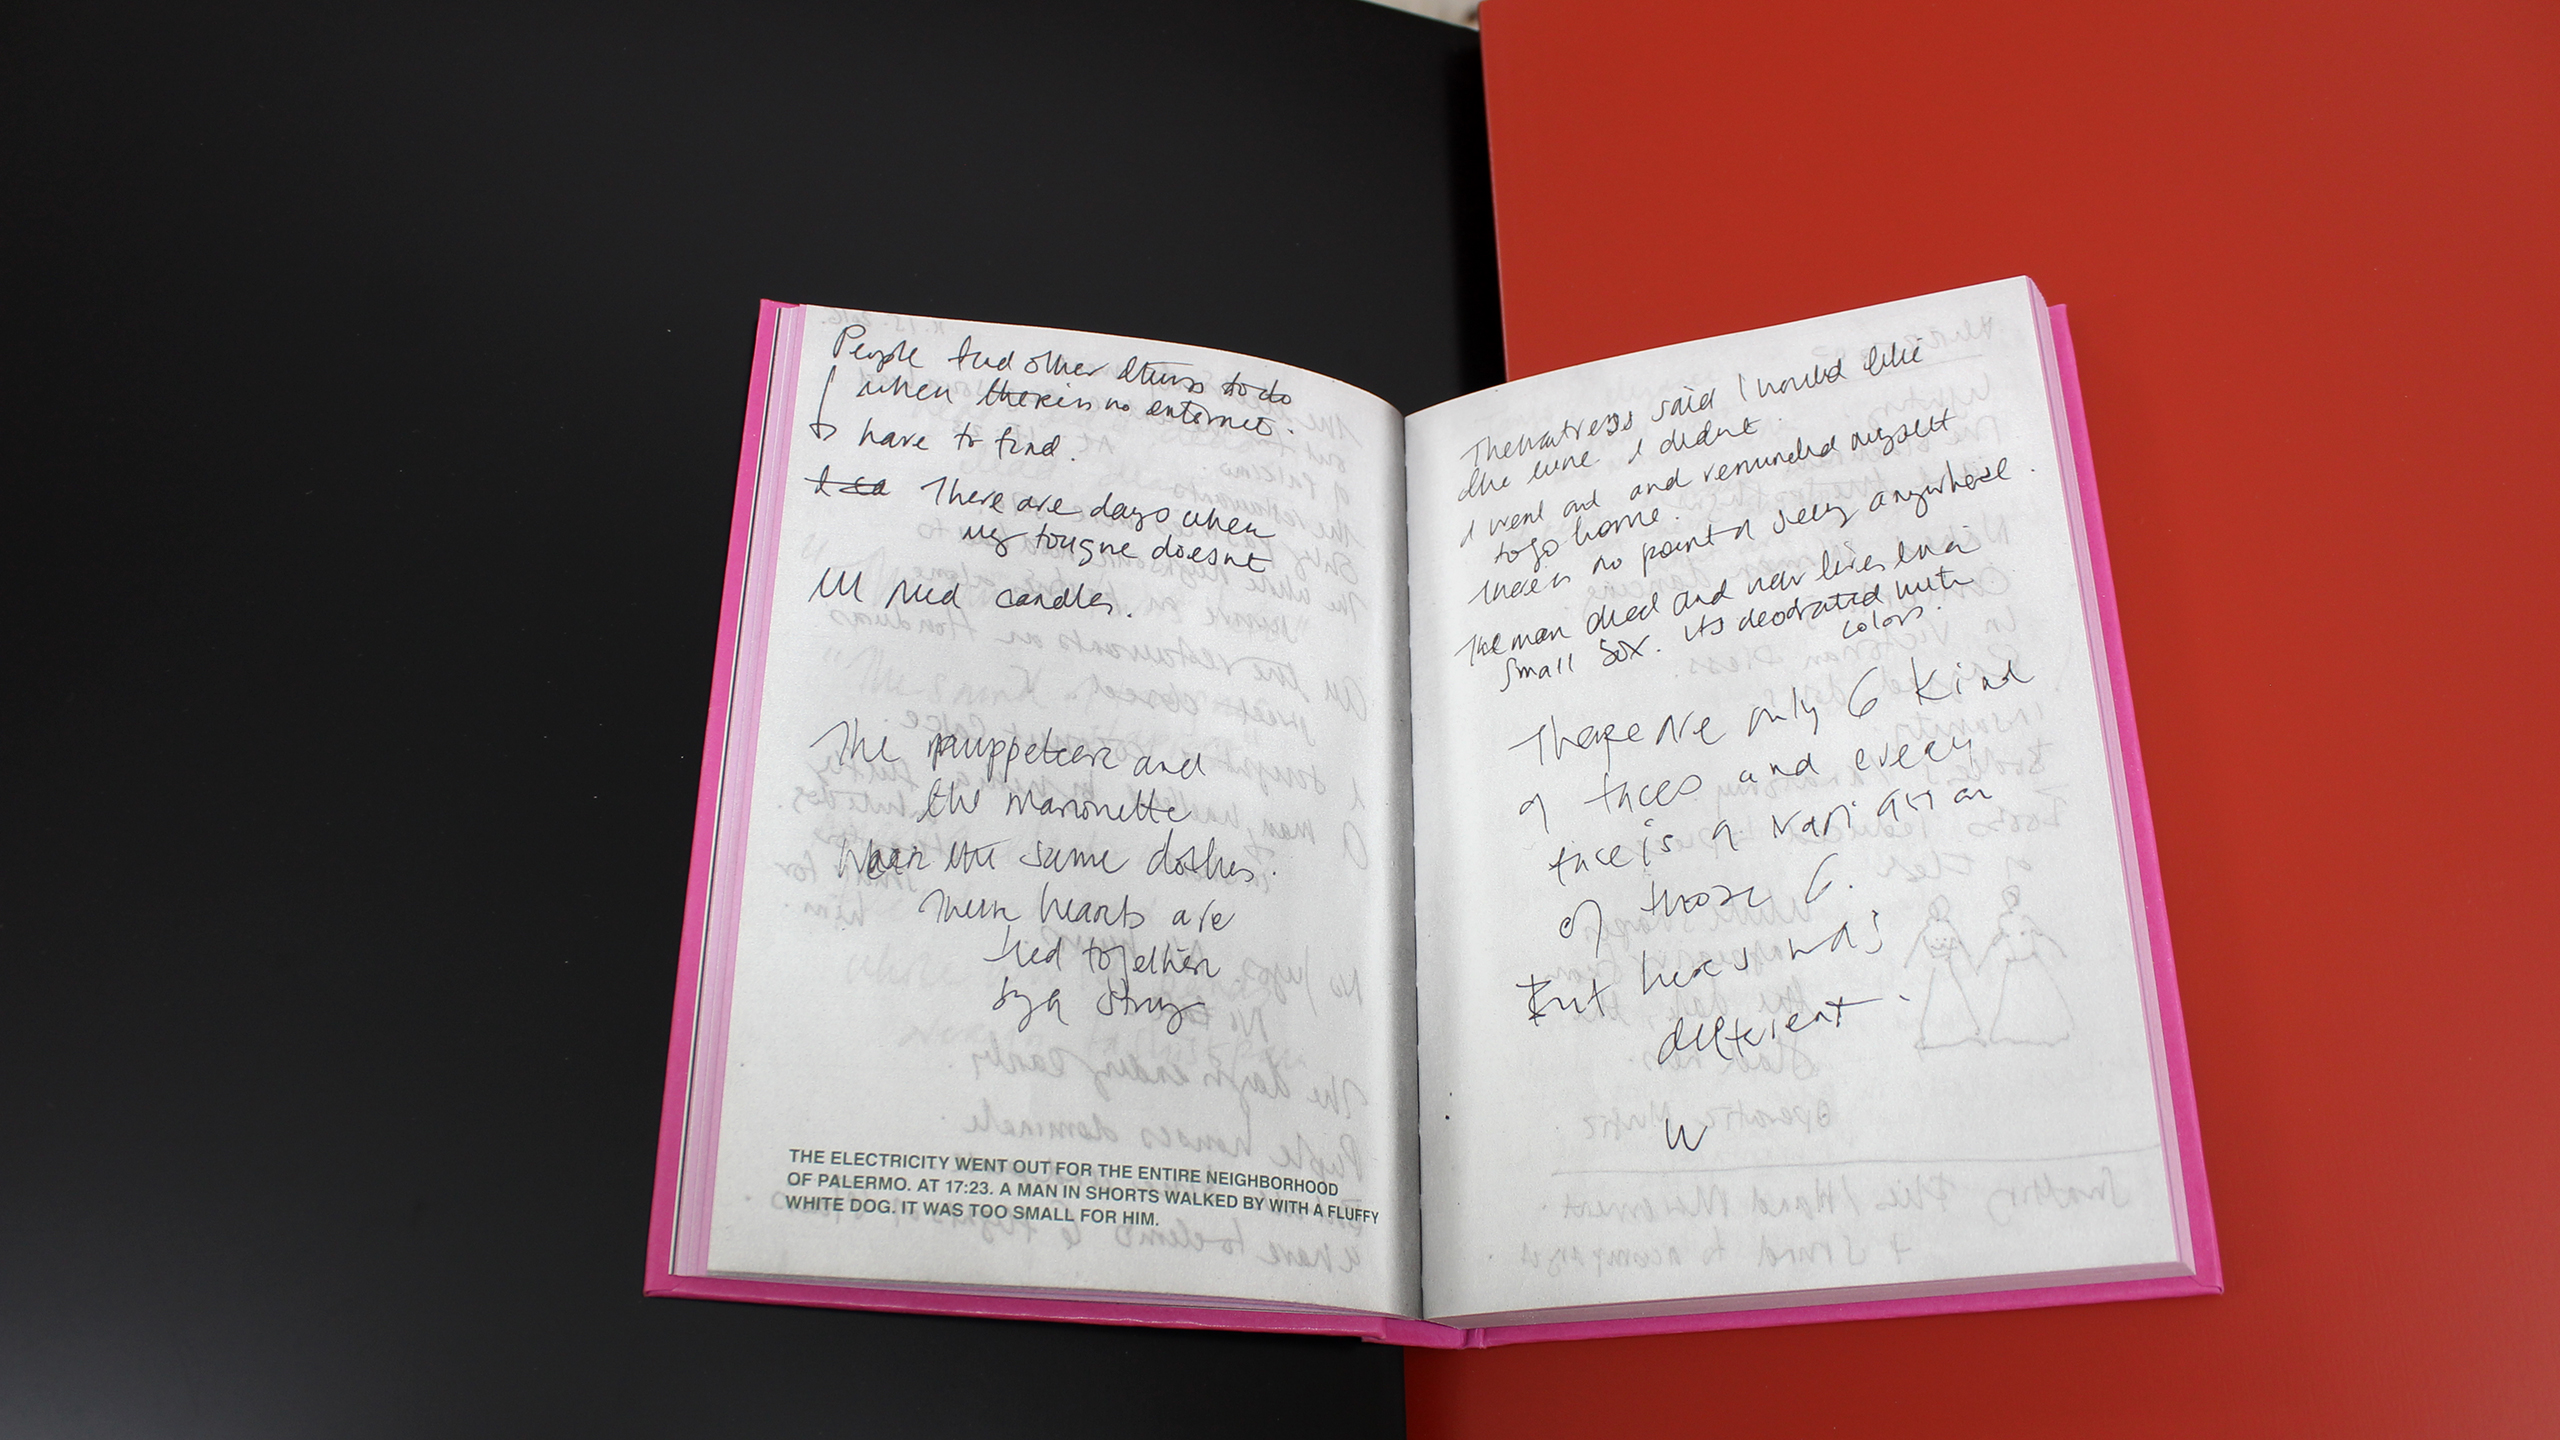 People find other things to do
when there is no internet.
have to find.
There are days when
my tongue doesnt
Ill need candles.
The puppeteer and
the marionette
wear the same clothes.
Their hearts are
tied together
by a string
THE ELECTRICITY WENT OUT FOR THE ENTIRE NEIGHBORHOOD
OF PALERMO. AT 17:23. A MAN IN SHORTS WALKED BY WITH A FLUFFY
WHITE DOG. IT WAS TOO SMALL FOR HIM.
The waitress said I would like
the wine I didnt.
I went out and reminded myself
to go home.
There is no point in anywhere.
The man died and now lives in a
small box. Its decorated with
colors.
There are only 6 kind
of faces and every
face is a variation
of those 6.
But hers was
different.
W